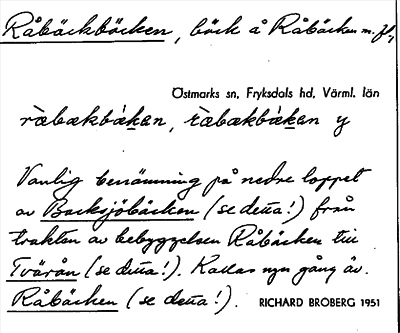 Råbäckbäcken, bäck å Råbäcken m. fl.,
Östmarks sn, Fryksdals hd, Värml. län
ràbækbàkan, ràbækbàkan y
Vanlig benämning på nedre loppet
av Backsjöbäcken (se detta!) från
trakten av bebyggelsen Råbäcken till
Tvärån (se detta!). Kallas nyn gång äv.
Råbäcken (se detta!). RICHARD BROBERG 1951